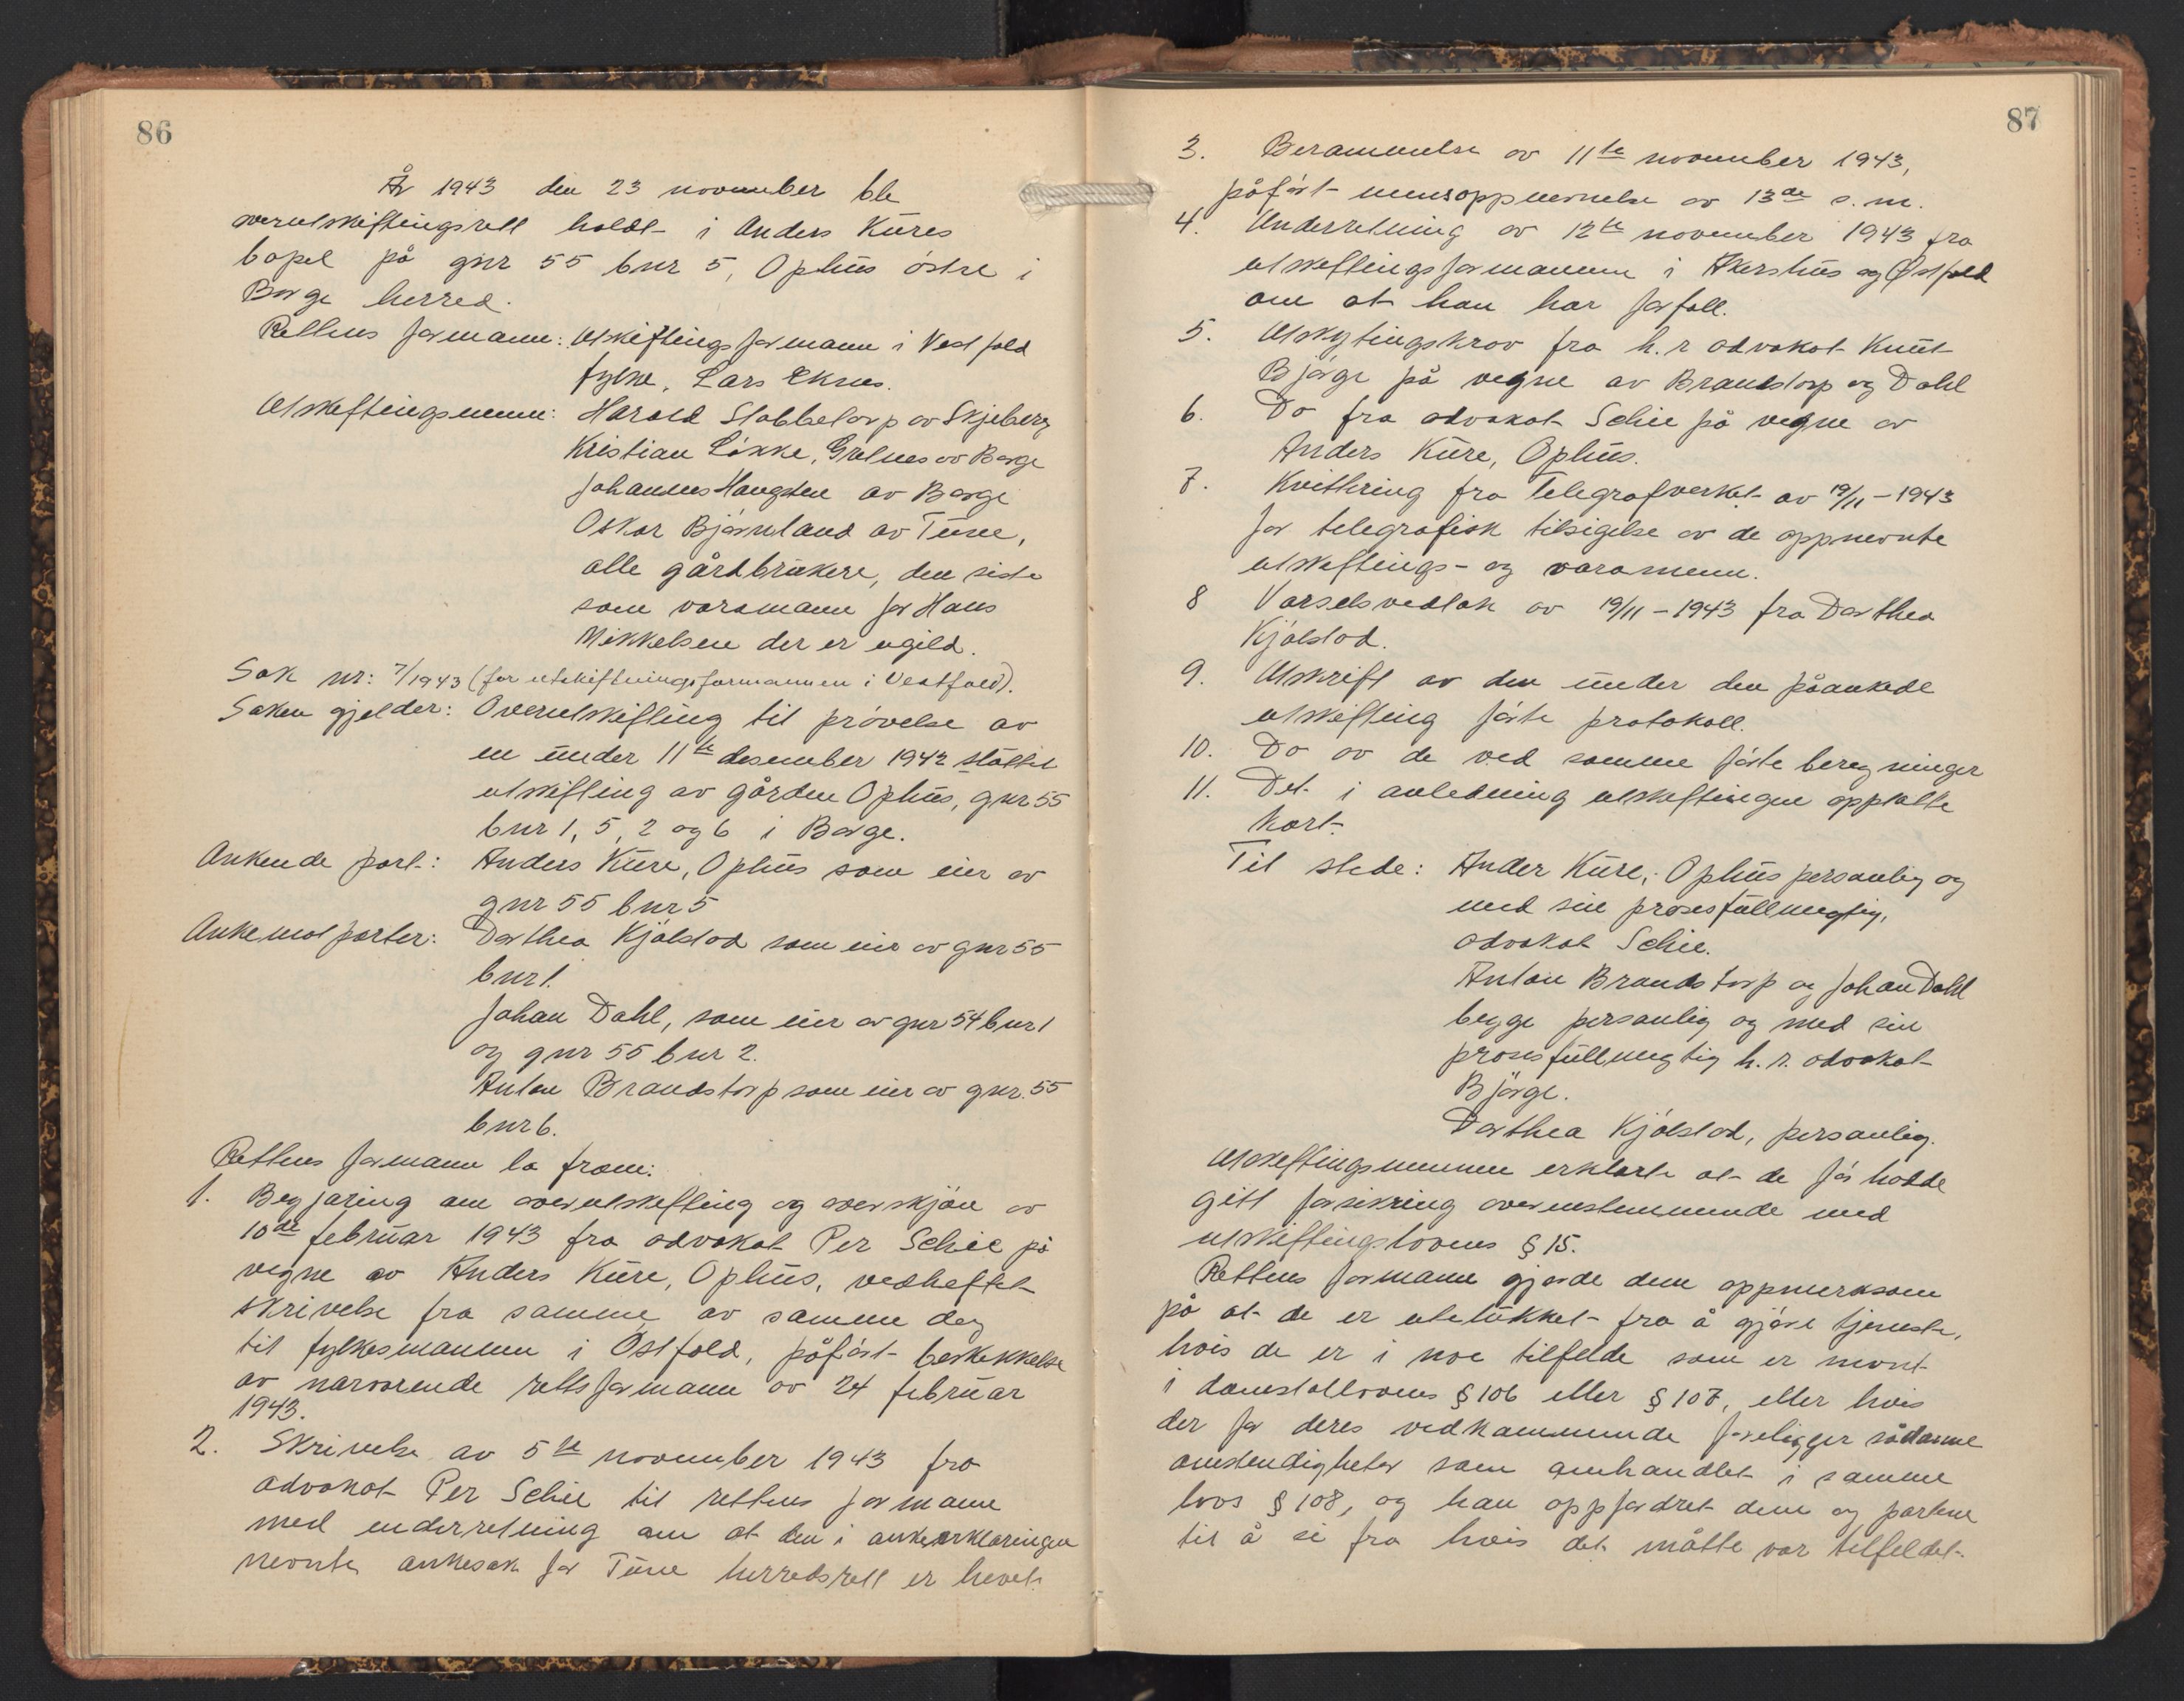 86
År 1943 den 23 november ble
overutskiftingsrett holdt i Anders Kures
bopel på gnr 55 bnr 5, Ophus östre i
Borge herred.
Rettens formann: Utskiftingsformann i Vestfold
fylke, Lars Eknes.
Utskiftingsmenn: Harald Stabbetorp av Skjeberg
Kristian Løkke, Grålnes av Borge
Johannes Haugsten av Borge
Oskar Bjørnland av Tune,
alle gårdbrukere, den siste
som varamann for Hans
Mikkelsen der er ugild.
Sak nr: 7/1943 (for utskiftningsformannen i Vestfold).
Saken gjelder: Overutskifting til prövelse av
en under 11te desember 1942 sluttet
utskifting av gården Ophus, gnr 55
bnr 1, 5, 2 og 6 i Borge.
Ankende part: Anders Kure, Ophus som eier av
gnr 55 bnr 5
Ankemotparter: Dorthea Kjölstad som eier av gnr 55
bnr 1.
Johan Dahl, som eier av gnr 54 bnr 1
og gnr 55 bnr 2.
Anton Brandstorp som eier av gnr. 55
bnr 6.
Rettens formann la fram:
1. Begjæring om overutskifting og overskjön av
10de februar 1943 fra advokat Per Schie på
vegne av Anders Kure, Ophus, vedheftet
skrivelse fra samme av samme dag
til fylkesmannen i Östfold, påfört beskikkelse
av nærværende rettsformann av 24 februar
1943.
2. Skrivelse av 5te november 1943 fra
advokat Per Schie til rettens formann
med underretning om at den i ankeerklæringen
nevnte ankesak for Tune herredsrett er hevet.
87
3. Berammelse av 11te november 1943,
påfört mennsoppnevnelse av 13de s.m.
4. Underretning av 12te november 1943 fra
utskiftingsformannen i Akershus og Østfold
om at han har forfall.
5. Utskytingskrav fra h.r advokat Knut
Bjørge på vegne av Brandstorp og Dahl
6. Do fra advokat Schie på vegne av
Anders Kure, Ophus.
7. Kvittering fra Telegrafverket av 19/11-1943
for telegrafisk tilsigelse av de oppnevnte
utskiftings- og varamenn.
8 Varselsvedtak av 19/11-1943 fra Dorthea
Kjölstad.
9. Utskrift av den under den påankede
utskifting förte protokoll.
10. Do av de ved samme förte beregninger
11. Det i anledning utskiftingen opptatte
kart.
Til stede: Ander Kure, Ophus personlig og
med sin prosesfullmegtig,
advokat Schie.
Anton Brandstorp og Johan Dahl
begge personlig og med sin
prosesfullmegtig h.r. advokat
Bjørge.
Dorthea Kjölstad, personlig.
Utskiftingsmennene erklærte at de för hadde
gitt forsikring overensstemmende med
utskiftingslovens § 15.
Rettens formann gjorde dem oppmerksom
på at de er utelukket fra å gjöre tjeneste,
hvis de er i noe tilfelde som er nevnt
i domstollovens § 106 eller § 107, eller hvis
der for deres vedkommende foreligger sådanne
omstendigheter som omhandlet i samme
lovs § 108, og han oppfordret dem og partene
til å si fra hvis det måtte vær tilfeldet.